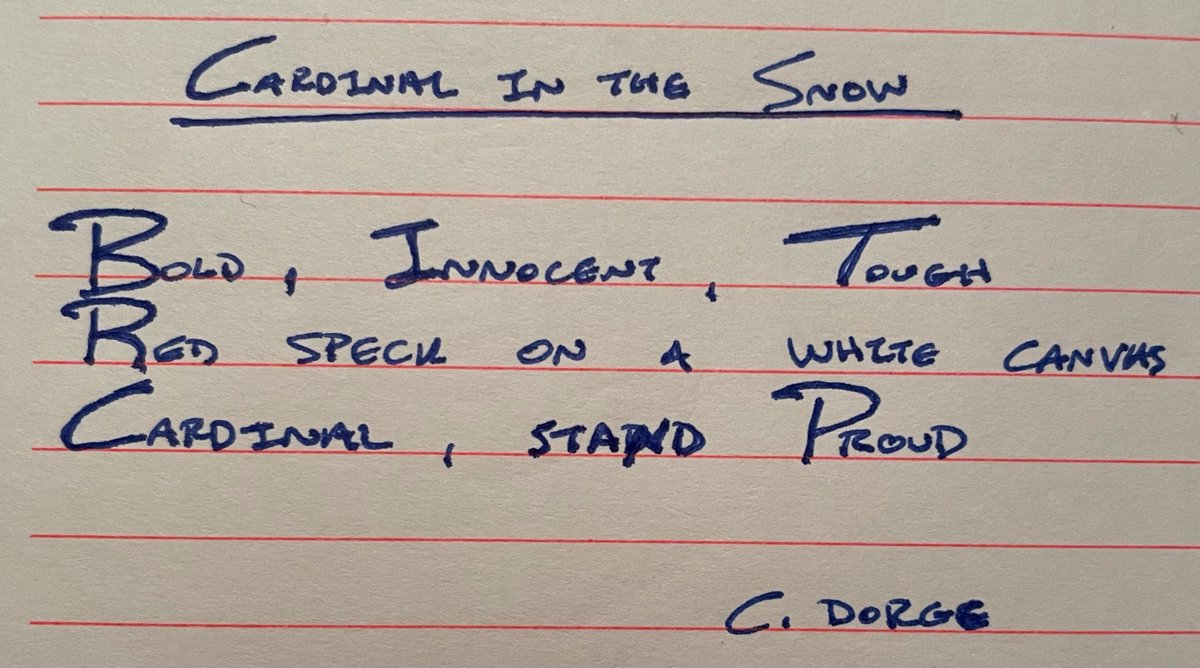 Cardinal in the Snow
Bold, Innocent, Tough
Red speck on a white canvas
Cardinal, stand Proud
C. Dorge